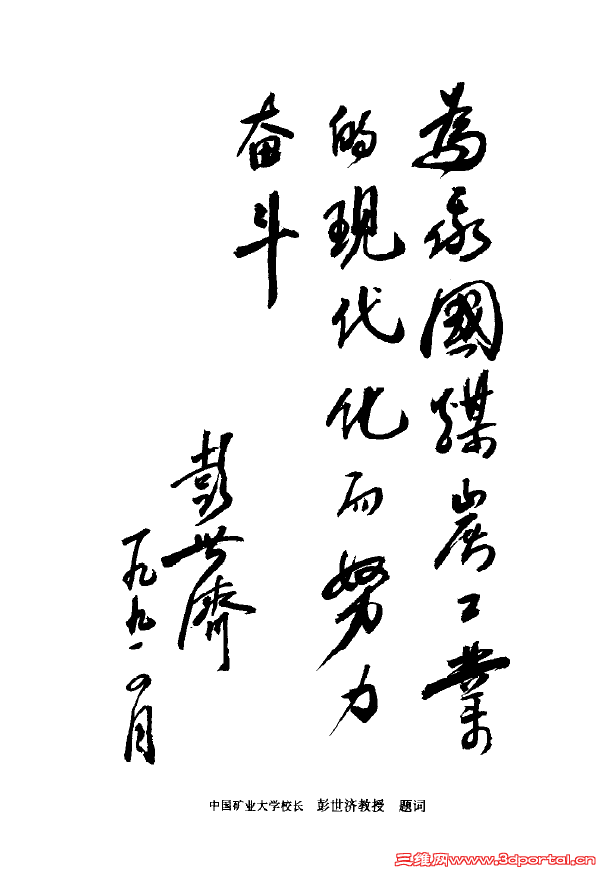 為我國煤炭工業
的現代化而努力
奋斗
彭世济
一九九一 月
中国矿业大学校长 彭世济教授 题词
三维网www.3dportal.cn